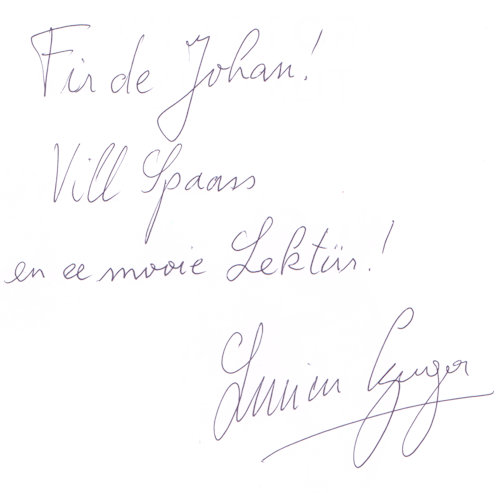 Fir de Johan!
Vill Spaass
en ee mooie Lektür!
Lucien Czuga